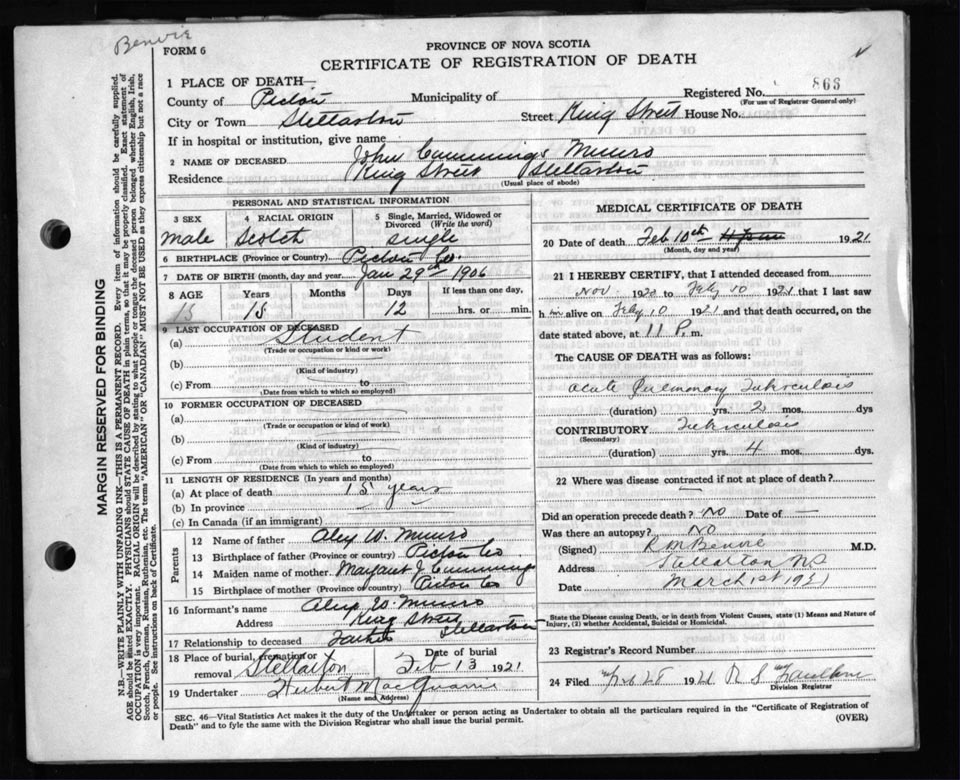 Benvie
FORM 6
PROVINCE OF NOVA SCOTIA
CERTIFICATE OF REGISTRATION OF DEATH
1 PLACE OF DEATH—
Registered No. 866
(For use of Registrar General only)
County of Pictou Municipality of
City or Town Stellarton Street King Street House No.
If in hospital or institution, give name
2 NAME OF DECEASED John Cummings Munro
Residence King Street Stellarton
(Usual place of abode)
PERSONAL AND STATISTICAL INFORMATION
3 SEX 4 RACIAL ORIGIN 5 Single, Married, Widowed or Divorced (Write the word)
Male Scotch single
6 BIRTHPLACE (Province or Country) Pictou Co.
7 DATE OF BIRTH (month, day and year) Jan 29th 1906
8 AGE Years Months Days If less than one day,
15 15 12 hrs. or min.
9 LAST OCCUPATION OF DECEASED
(a) Student
(Trade or occupation or kind or work)
(b)
(Kind of industry)
(c) From to
(Date from which to which so employed)
10 FORMER OCCUPATION OF DECEASED
(a)
(Trade or occupation or kind of work)
(b)
(Kind of industry)
(c) From to
(Date from which to which so employed)
11 LENGTH OF RESIDENCE (In years and months)
(a) At place of death 15 years
(b) In province
(c) In Canada (if an immigrant)
Parents
12 Name of father Alex W. Munro
13 Birthplace of father (Province or country) Pictou Co
14 Maiden name of mother Margaret J Cummings
15 Birthplace of mother (Province or country) Pictou Co
16 Informant's name Alex W. Munro
Address King Street Stellarton
17 Relationship to deceased Father
18 Place of burial, cremation or removal Stellarton Date of burial Feb 13 1921
19 Undertaker
(Name and Address)
MEDICAL CERTIFICATE OF DEATH
20 Date of death Feb 10th 1921
(Month, day and year)
21 I HEREBY CERTIFY, that I attended deceased from
Nov. 1920 to Feby 10 1921 that I last saw
h im alive on Feby 10 1921 and that death occurred, on the
date stated above, at 11 P. m.
The CAUSE OF DEATH was as follows:
Acute Pulmonary Tuberculosis
(duration) yrs. 2 mos. dys
CONTRIBUTORY Tuberculosis
(Secondary)
(duration) yrs. 4 mos. dys.
22 Where was disease contracted if not at place of death?
—
Did an operation precede death? No Date of —
Was there an autopsy? No
(Signed) Benvie M.D.
Address Stellarton NS
Date March 1st 1921
State the Disease causing Death, or in death from Violent Causes, state (1) Means and Nature of
Injury, (2) whether Accidental, Suicidal or Homicidal.
23 Registrar's Record Number
24 Filed 1921
Division Registrar
SEC. 46—Vital Statistics Act makes it the duty of the Undertaker or person acting as Undertaker to obtain all the particulars required in the "Certificate of Registration of
Death" and to fyle the same with the Division Registrar who shall issue the burial permit.
(OVER)
MARGIN RESERVED FOR BINDING
N.B.—WRITE PLAINLY WITH UNFADING INK—THIS IS A PERMANENT RECORD. Every item of information should be carefully supplied.
AGE should be stated EXACTLY. PHYSICIANS should STATE CAUSE OF DEATH in plain terms, so that it may be properly classified. Exact statement of
OCCUPATION is very important. RACIAL ORIGIN will be described by stating to what people or tongue the deceased person belonged whether English, Irish,
Scotch, French, German, Russian, Ruthenian, etc. The terms "AMERICAN" OR "CANADIAN" MUST NOT BE USED as they express citizenship but not a race
or people. See instructions on back of Certificate.